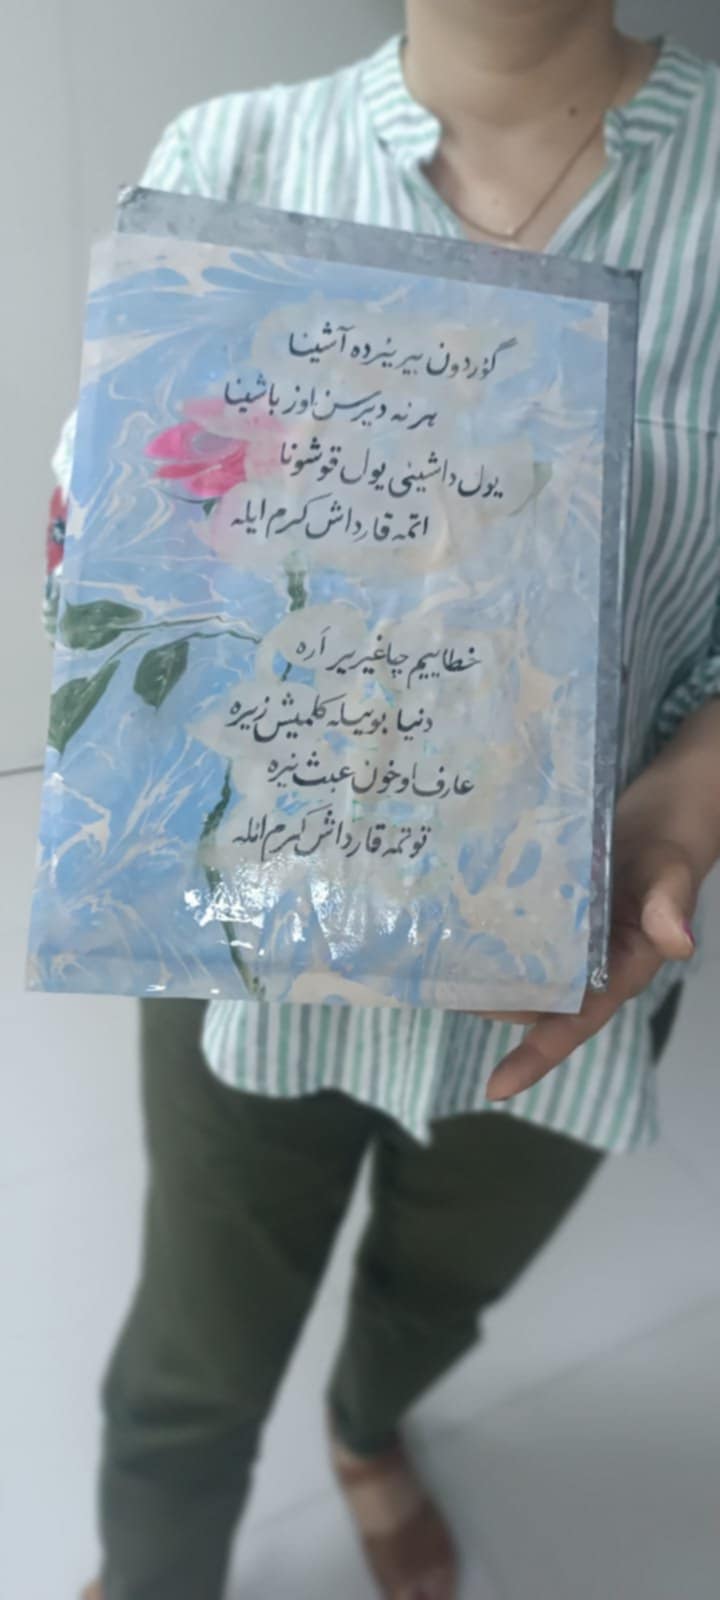 گؤردون بیر یئرده آشینا
هر نه دیرسن اوز باشینا
یول داشینی یول قوشونا
اتمه قارداش کرم ایله
خطاییم چاغیریر اَره
دنیا بویله گلمیش زیره
عارف اوخون عبث یئره
توتمه قارداش کرم ائله